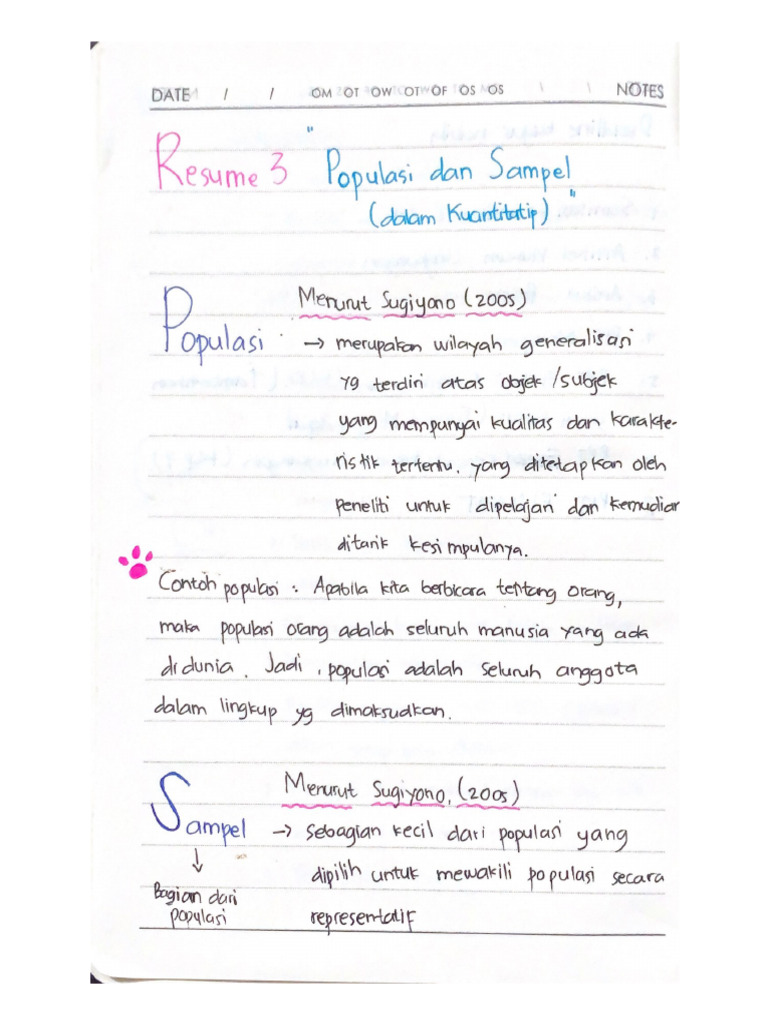 DATE / / OM OT OW OT OF OS OS NOTES
Resume 3 "Populasi dan Sampel
(dalam Kuantitatip)"
Populasi Menurut Sugiyono (2005)
→ merupakan wilayah generalisasi
yg terdiri atas objek/subjek
yang mempunyai kualitas dan karakte-
ristik tertentu, yang ditetapkan oleh
peneliti untuk dipelajari dan kemudian
ditarik kesimpulanya.
Contoh populasi : Apabila kita berbicara tentang orang,
maka populasi orang adalah seluruh manusia yang ada
di dunia. Jadi, populasi adalah seluruh anggota
dalam lingkup yg dimaksudkan.
Sampel Menurut Sugiyono, (2005)
→ sebagian kecil dari populasi yang
dipilih untuk mewakili populasi secara
representatif
↓
Bagian dari
populasi